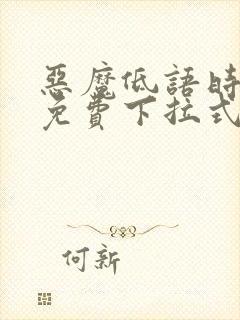 惡魔低語時
免費下拉式
何新